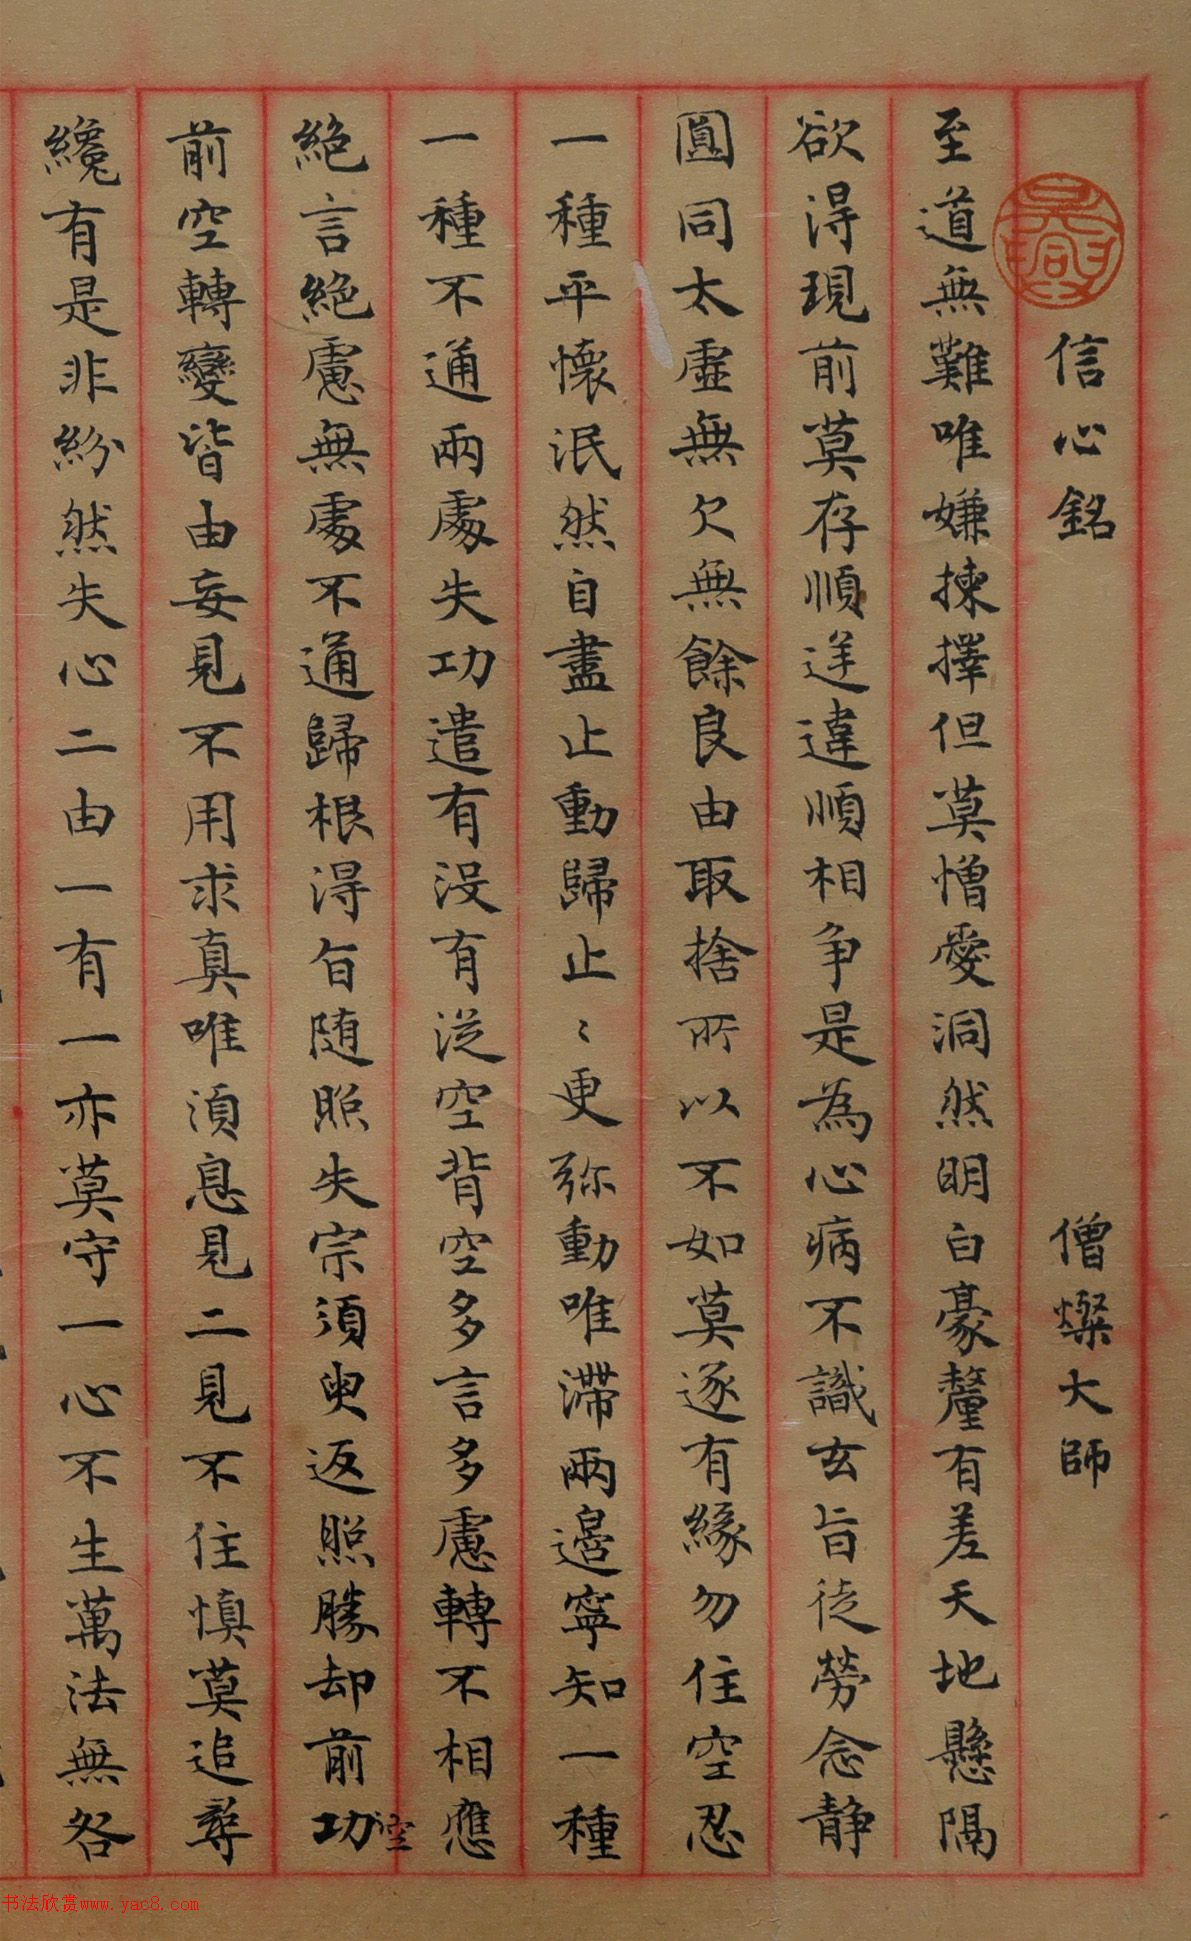 信心銘 僧燦大師
至道無難唯嫌揀擇但莫憎愛洞然明白豪釐有差天地懸隔
欲淂現前莫存順逆違順相争是為心病不識玄旨徒勞念静
圓同太虛無欠無餘良由取捨所以不如莫逐有緣勿住空忍
一種平懷泯然自盡止動歸止〻更弥動唯滯兩邊寧知一種
一種不通兩處失功遣有沒有從空背空多言多慮轉不相應
絕言絕慮無處不通歸根淂旨随照失宗須臾返照勝却前功空
前空轉變皆由妄見不用求真唯須息見二見不住慎莫追尋
纔有是非紛然失心二由一有一亦莫守一心不生萬法無各
书法欣赏www.yac8.com